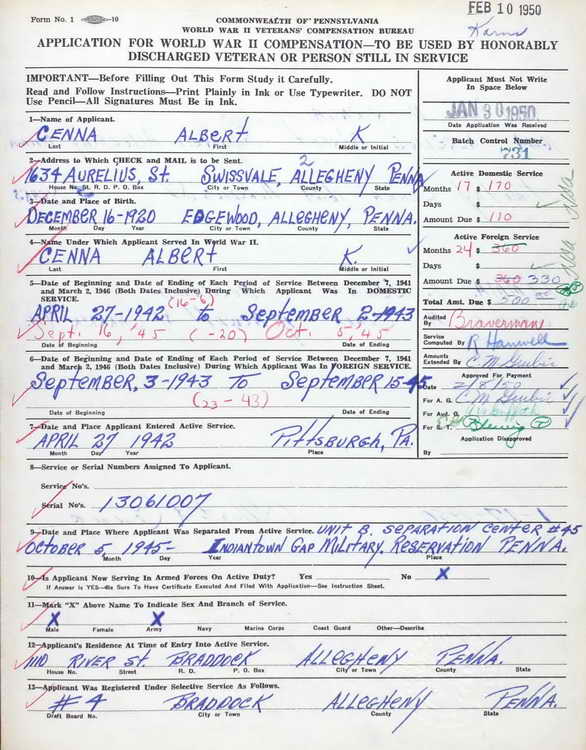 FEB 10 1950
Form No. 1 —10
COMMONWEALTH OF PENNSYLVANIA
WORLD WAR II VETERANS' COMPENSATION BUREAU
APPLICATION FOR WORLD WAR II COMPENSATION—TO BE USED BY HONORABLY
DISCHARGED VETERAN OR PERSON STILL IN SERVICE
IMPORTANT—Before Filling Out This Form Study it Carefully.
Read and Follow Instructions—Print Plainly in Ink or Use Typewriter. DO NOT
Use Pencil—All Signatures Must Be in Ink.
Applicant Must Not Write
In Space Below
JAN 30 1950
Date Application Was Received
Batch Control Number
731
1—Name of Applicant.
CENNA ALBERT K
Last First Middle or Initial
2—Address to Which CHECK and MAIL is to be Sent.
2
1634 AURELIUS, St. SWISSVALE, ALLEGHENY PENNA
House No. St. R. D. P. O. Box City or Town County State
3—Date and Place of Birth.
DECEMBER 16-1920 EDGEWOOD, ALLEGHENY, PENNA.
Month Day Year City or Town County State
4—Name Under Which Applicant Served In World War II.
CENNA ALBERT K.
Last First Middle or Initial
Active Domestic Service
Months 17 $ 170
Days $
Amount Due $ 110
Active Foreign Service
Months 24 $ 360
Days $
Amount Due $ 360 330
Total Amt. Due $ 500.00
Audited By Braverman
Service Computed By R Hanwell
Amounts Extended By
Approved For Payment
Date 2/8/50
For A. G.
For Aud. G.
For S. T.
Application Disapproved
By
5—Date of Beginning and Date of Ending of Each Period of Service Between December 7, 1941
and March 2, 1946 (Both Dates Inclusive) During Which Applicant Was In DOMESTIC
SERVICE.
(16-6)
APRIL 27-1942 to September 2-1943
Sept. 16, '45 (-20) Oct. 5-'45
Date of Beginning Date of Ending
6—Date of Beginning and Date of Ending of Each Period of Service Between December 7, 1941
and March 2, 1946 (Both Dates Inclusive) During Which Applicant Was In FOREIGN SERVICE.
September, 3-1943 To September 15-45
(23-43)
Date of Beginning Date of Ending
7—Date and Place Applicant Entered Active Service.
APRIL 27 1942 Pittsburgh, PA.
Month Day Year Place
8—Service or Serial Numbers Assigned To Applicant.
Service No's.
Serial No's. 13061007
9—Date and Place Where Applicant Was Separated From Active Service. UNIT B. SEPARATION CENTER #45
OCTOBER 5, 1945- INDIANTOWN GAP MILITARY, RESERVATION PENNA.
Month Day Year Place
10—Is Applicant Now Serving In Armed Forces On Active Duty? Yes No X
If Answer Is YES—Be Sure To Have Certificate Executed And Filed With Application—See Instruction Sheet.
11—Mark "X" Above Name To Indicate Sex And Branch of Service.
X X
Male Female Army Navy Marine Corps Coast Guard Other—Describe
12—Applicant's Residence At Time of Entry Into Active Service.
1110 RIVER St. BRADDOCK ALLEGHENY PENNA.
House No. Street R. D. P. O. Box City or Town County State
13—Applicant Was Registered Under Selective Service As Follows.
#4 BRADDOCK ALLEGHENY PENNA.
Draft Board No. City or Town County State